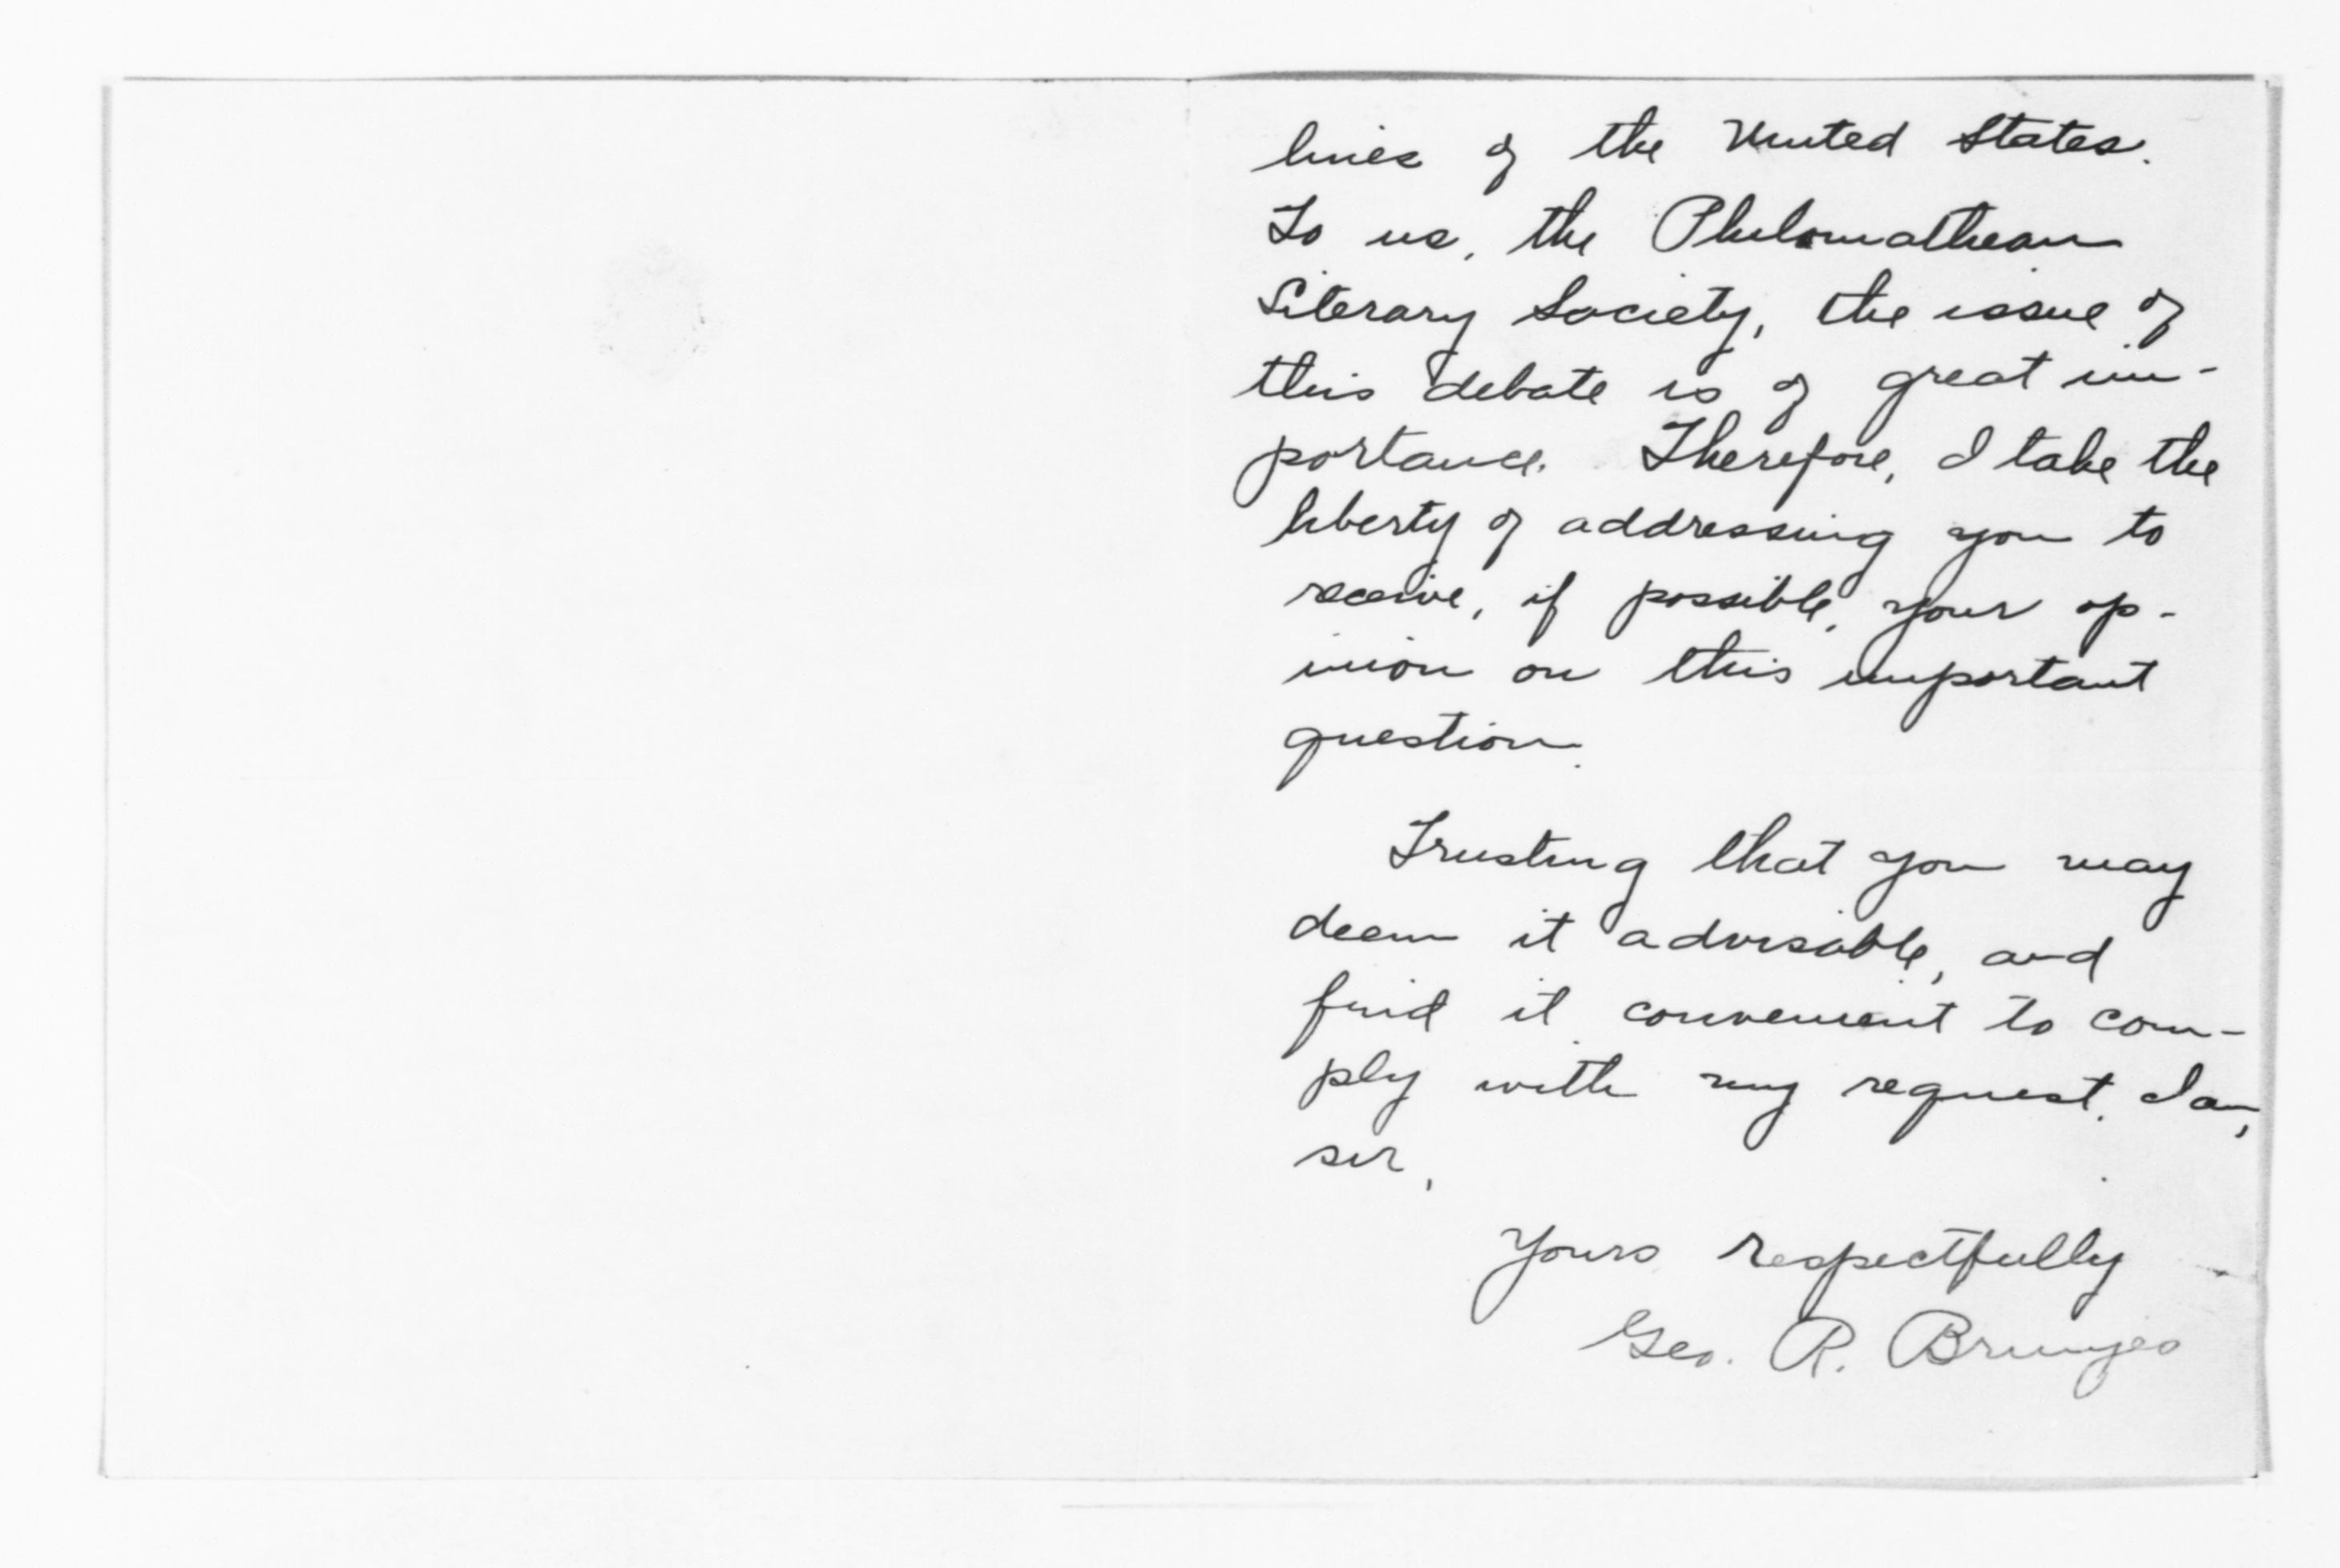 lines of the United States.
To us, the Philomathean
Literary Society, the issue of
this debate is of great im-
portance. Therefore, I take the
liberty of addressing you to
receive, if possible, your op-
inion on this important
question.
Trusting that you may
deem it advisable, and
find it convenient to com-
ply with my request, I am,
sir,
Yours respectfully
Geo. R. Brunjes